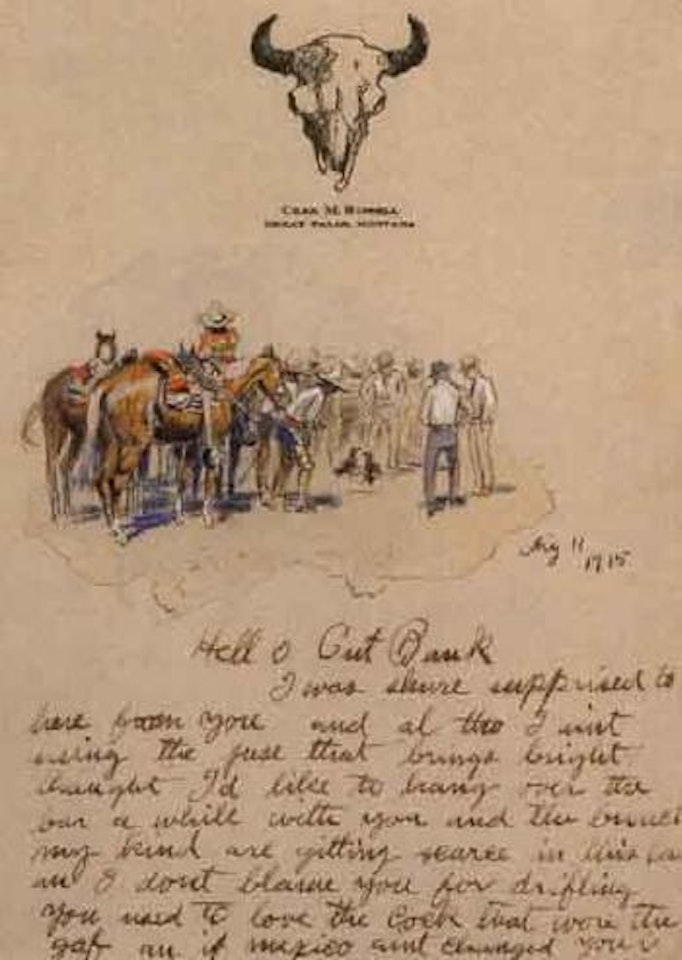 Chas. M. Russell
Great Falls, Montana
Aug 11
1915
Hell o Cut Bank
I was shure supprised to
here from you and al tho I aint
using the juse that brings bright
thaught I'd like to hang over the
bar a while with you and the bunch
my kind are gitting scarce in this
an I dont blame you for drifting
you used to love the cock that wore the
gaf an if mexico aint changed your